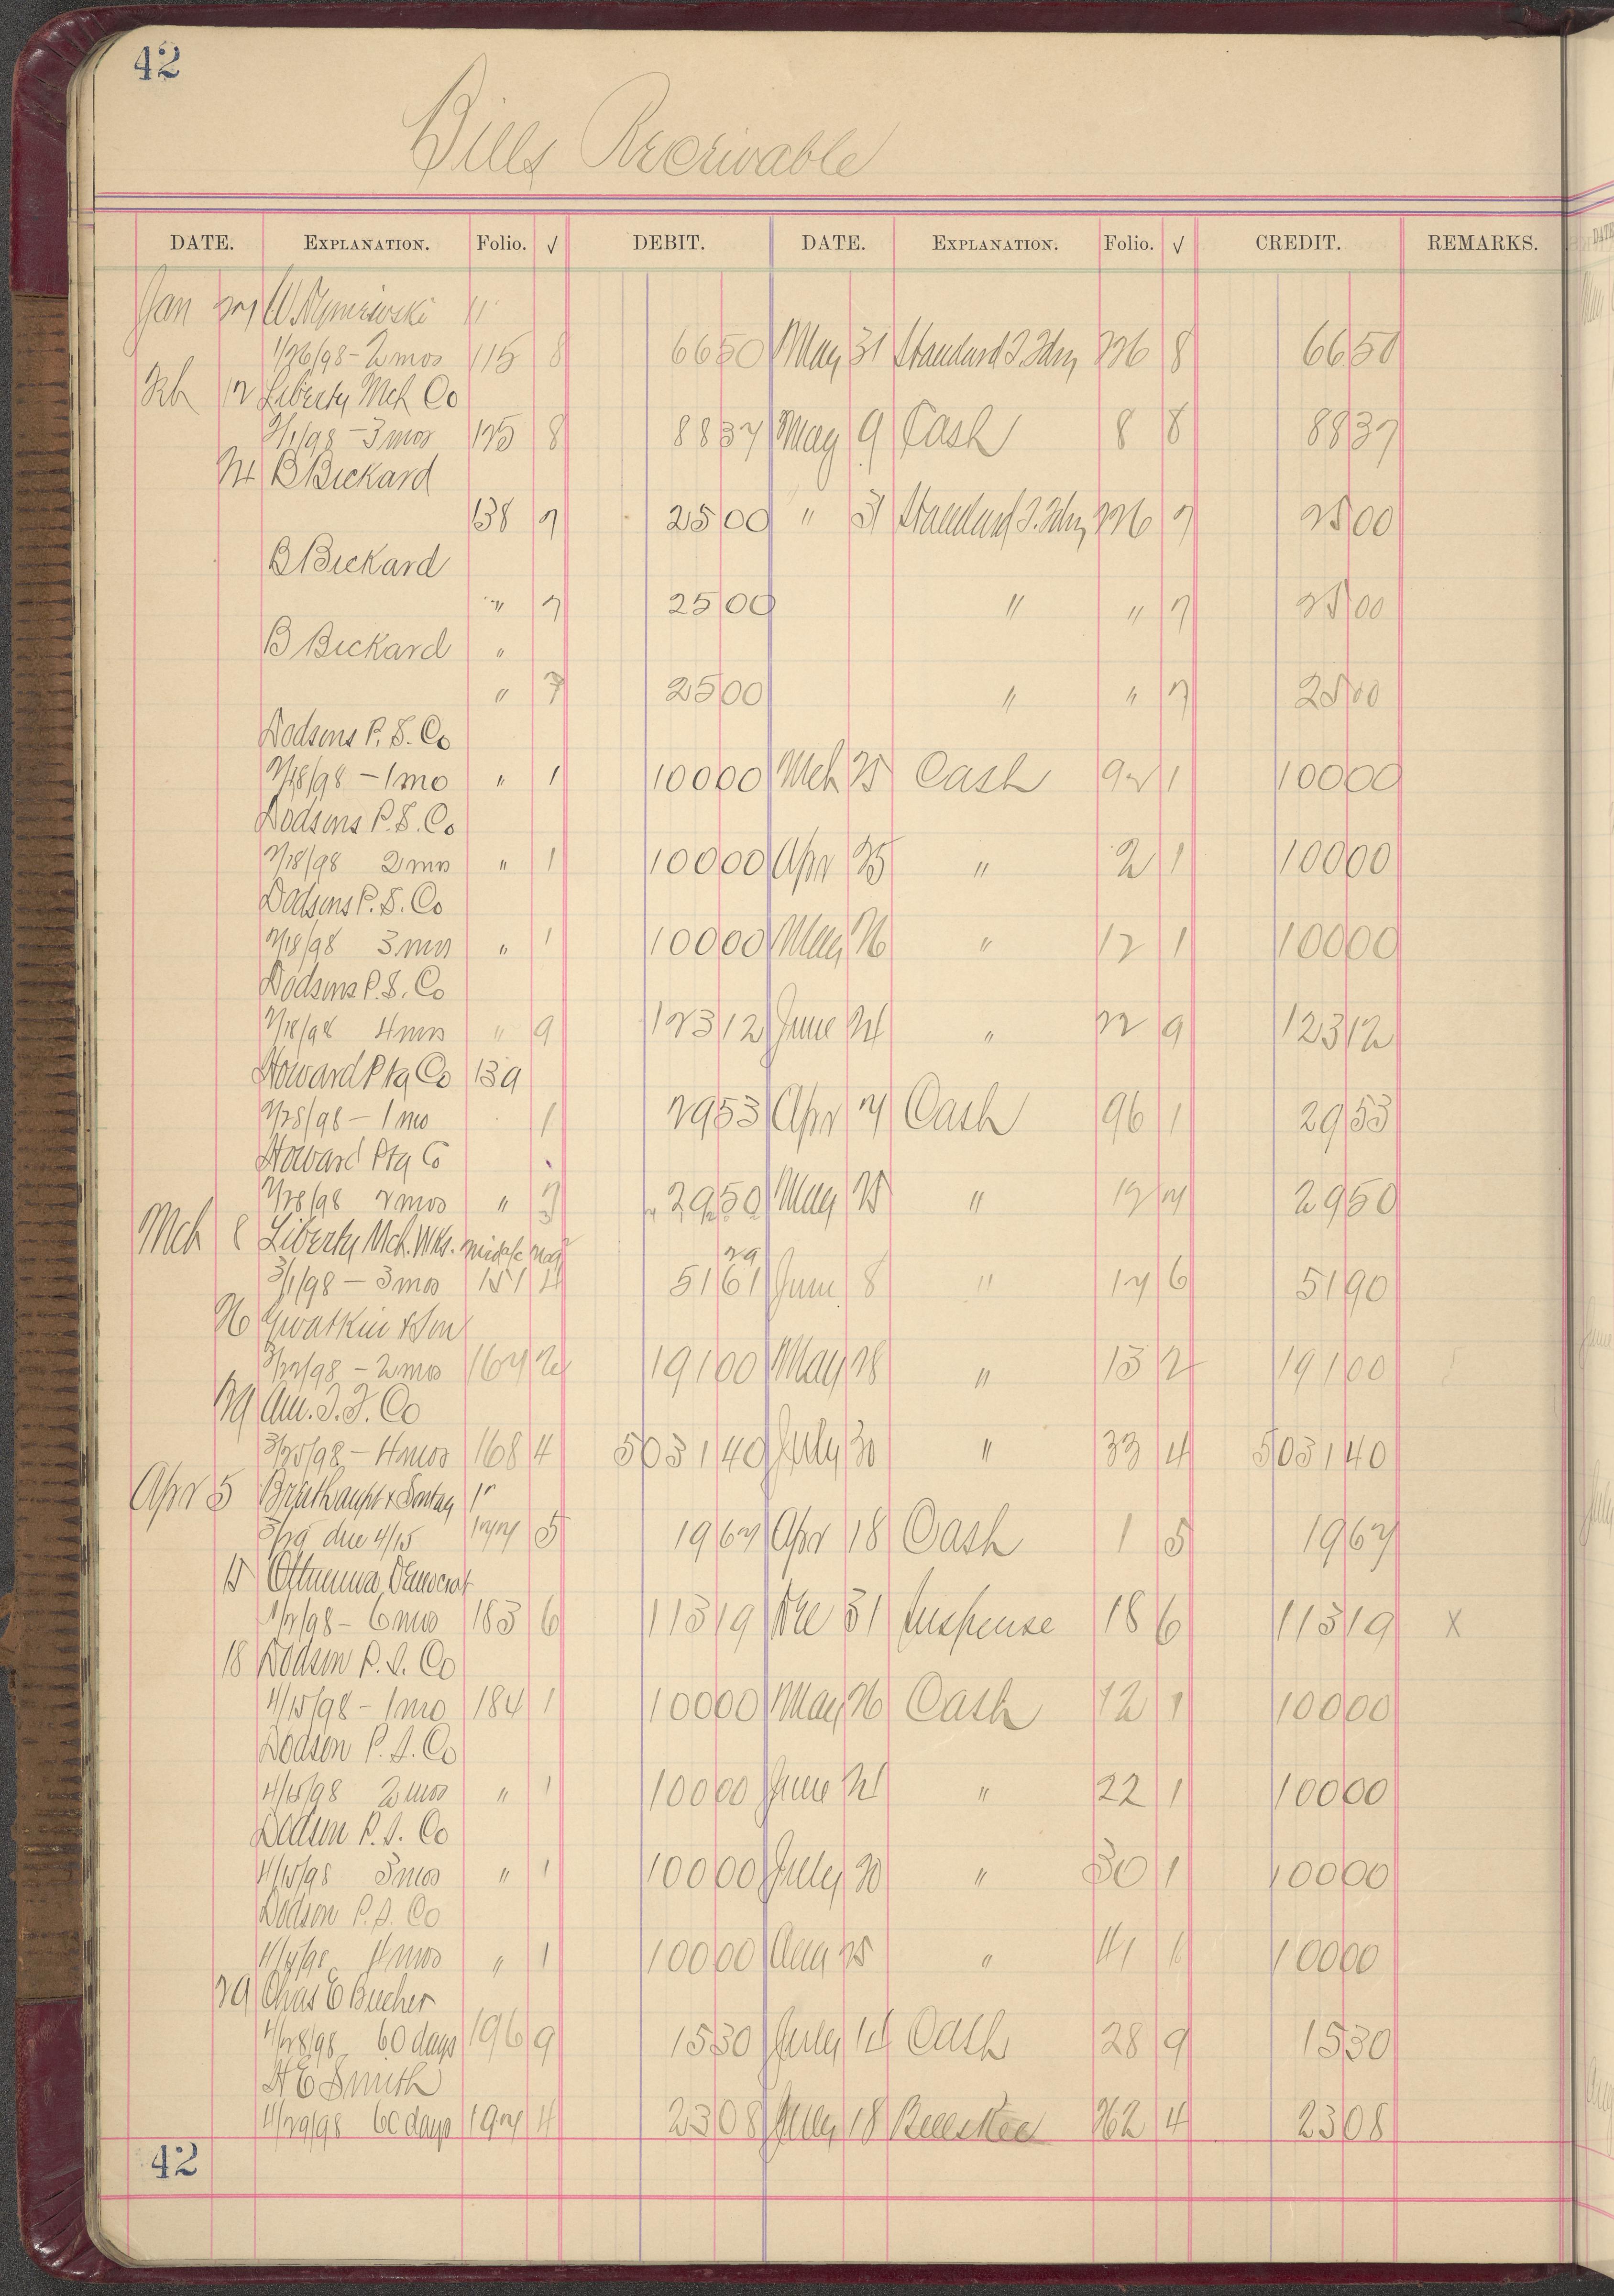 42
Bills Receivable
DATE. EXPLANATION. Folio. √ DEBIT. DATE. EXPLANATION. Folio. √ CREDIT. REMARKS.
Jan 27 W
1/26/98 - 2 mos 115 8 66 50 May 31 Standard 226 8 66 50
Feb 12 Liberty Mch Co
2/1/98 - 3 mos 125 8 88 37 May 9 Cash 8 8 88 37
24 B Bickard
138 7 25 00 " 31 Standard 226 7 25 00
B Bickard
" 7 25 00 " " 7 25 00
B Bickard "
" 7 25 00 " " 7 25 00
Dodsons P. S. Co
2/18/98 - 1 mo " 1 100 00 Mch 25 Cash 92 1 100 00
Dodsons P. S. Co
2/18/98 2 mos " 1 100 00 Apr 25 " 2 1 100 00
Dodsons P. S. Co
2/18/98 3 mos " 1 100 00 May 26 " 12 1 100 00
Dodsons P. S. Co
2/18/98 4 mos " 9 123 12 June 24 " 22 9 123 12
Howard Ptg Co 139
2/28/98 - 1 mo 1 29 53 Apr 7 Cash 96 1 29 53
Howard Ptg Co
2/28/98 2 mos " 7 29 50 May 25 " 12 7 29 50
Mch 8 Liberty Mch. Wks.
29
3/1/98 - 3 mos 151 4 51 61 June 8 " 17 6 51 90
26 Gwatkin & Son
3/22/98 - 2 mos 167 2 191 00 May 28 " 13 2 191 00
29 Am. T. F. Co
3/25/98 - 4 mos 168 4 5031 40 July 30 " 33 4 5031 40
Apr 5 Breithaupt & Sontag
3/29 due 4/15 177 5 19 67 Apr 18 Cash 1 5 19 67
15 Ottumwa Democrat
1/2/98 - 6 mos 183 6 113 19 Dec 31 Suspense 18 6 113 19 x
18 Dodson P. S. Co
4/15/98 - 1 mo 184 1 100 00 May 26 Cash 12 1 100 00
Dodson P. S. Co
4/15/98 2 mos " 1 100 00 June 24 " 22 1 100 00
Dodson P. S. Co
4/15/98 3 mos " 1 100 00 July 20 " 30 1 100 00
Dodson P. S. Co
4/15/98 4 mos " 1 100 00 Aug 25 " 41 1 100 00
29 Chas E Bucher
4/28/98 60 days 196 9 15 30 July 14 Cash 28 9 15 30
H E Smith
4/29/98 60 days 197 4 23 08 July 18 Bills Rec 262 4 23 08
42